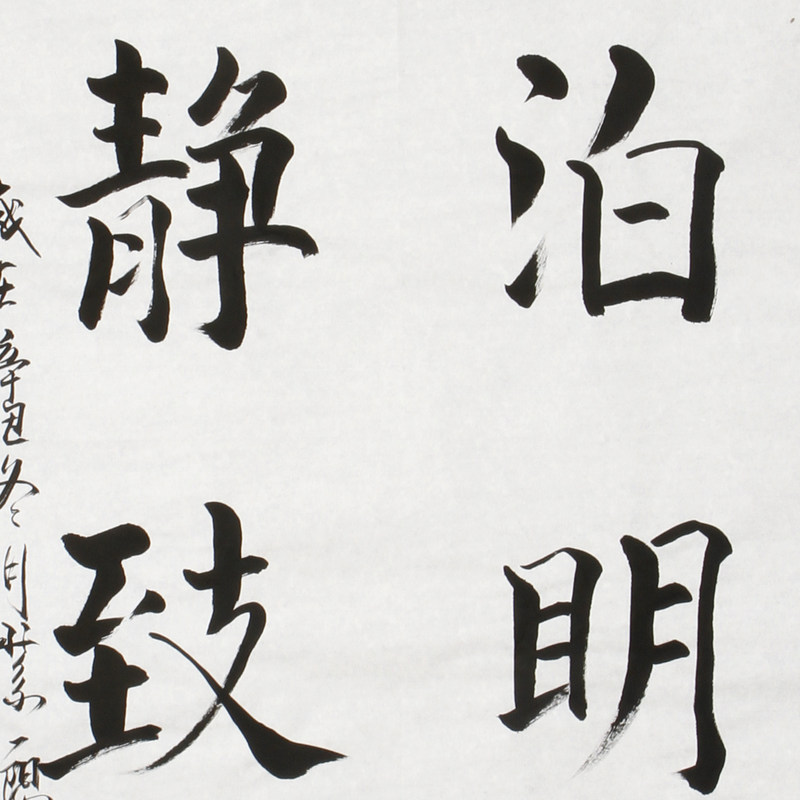 泊明
静致
歲在辛丑冬月